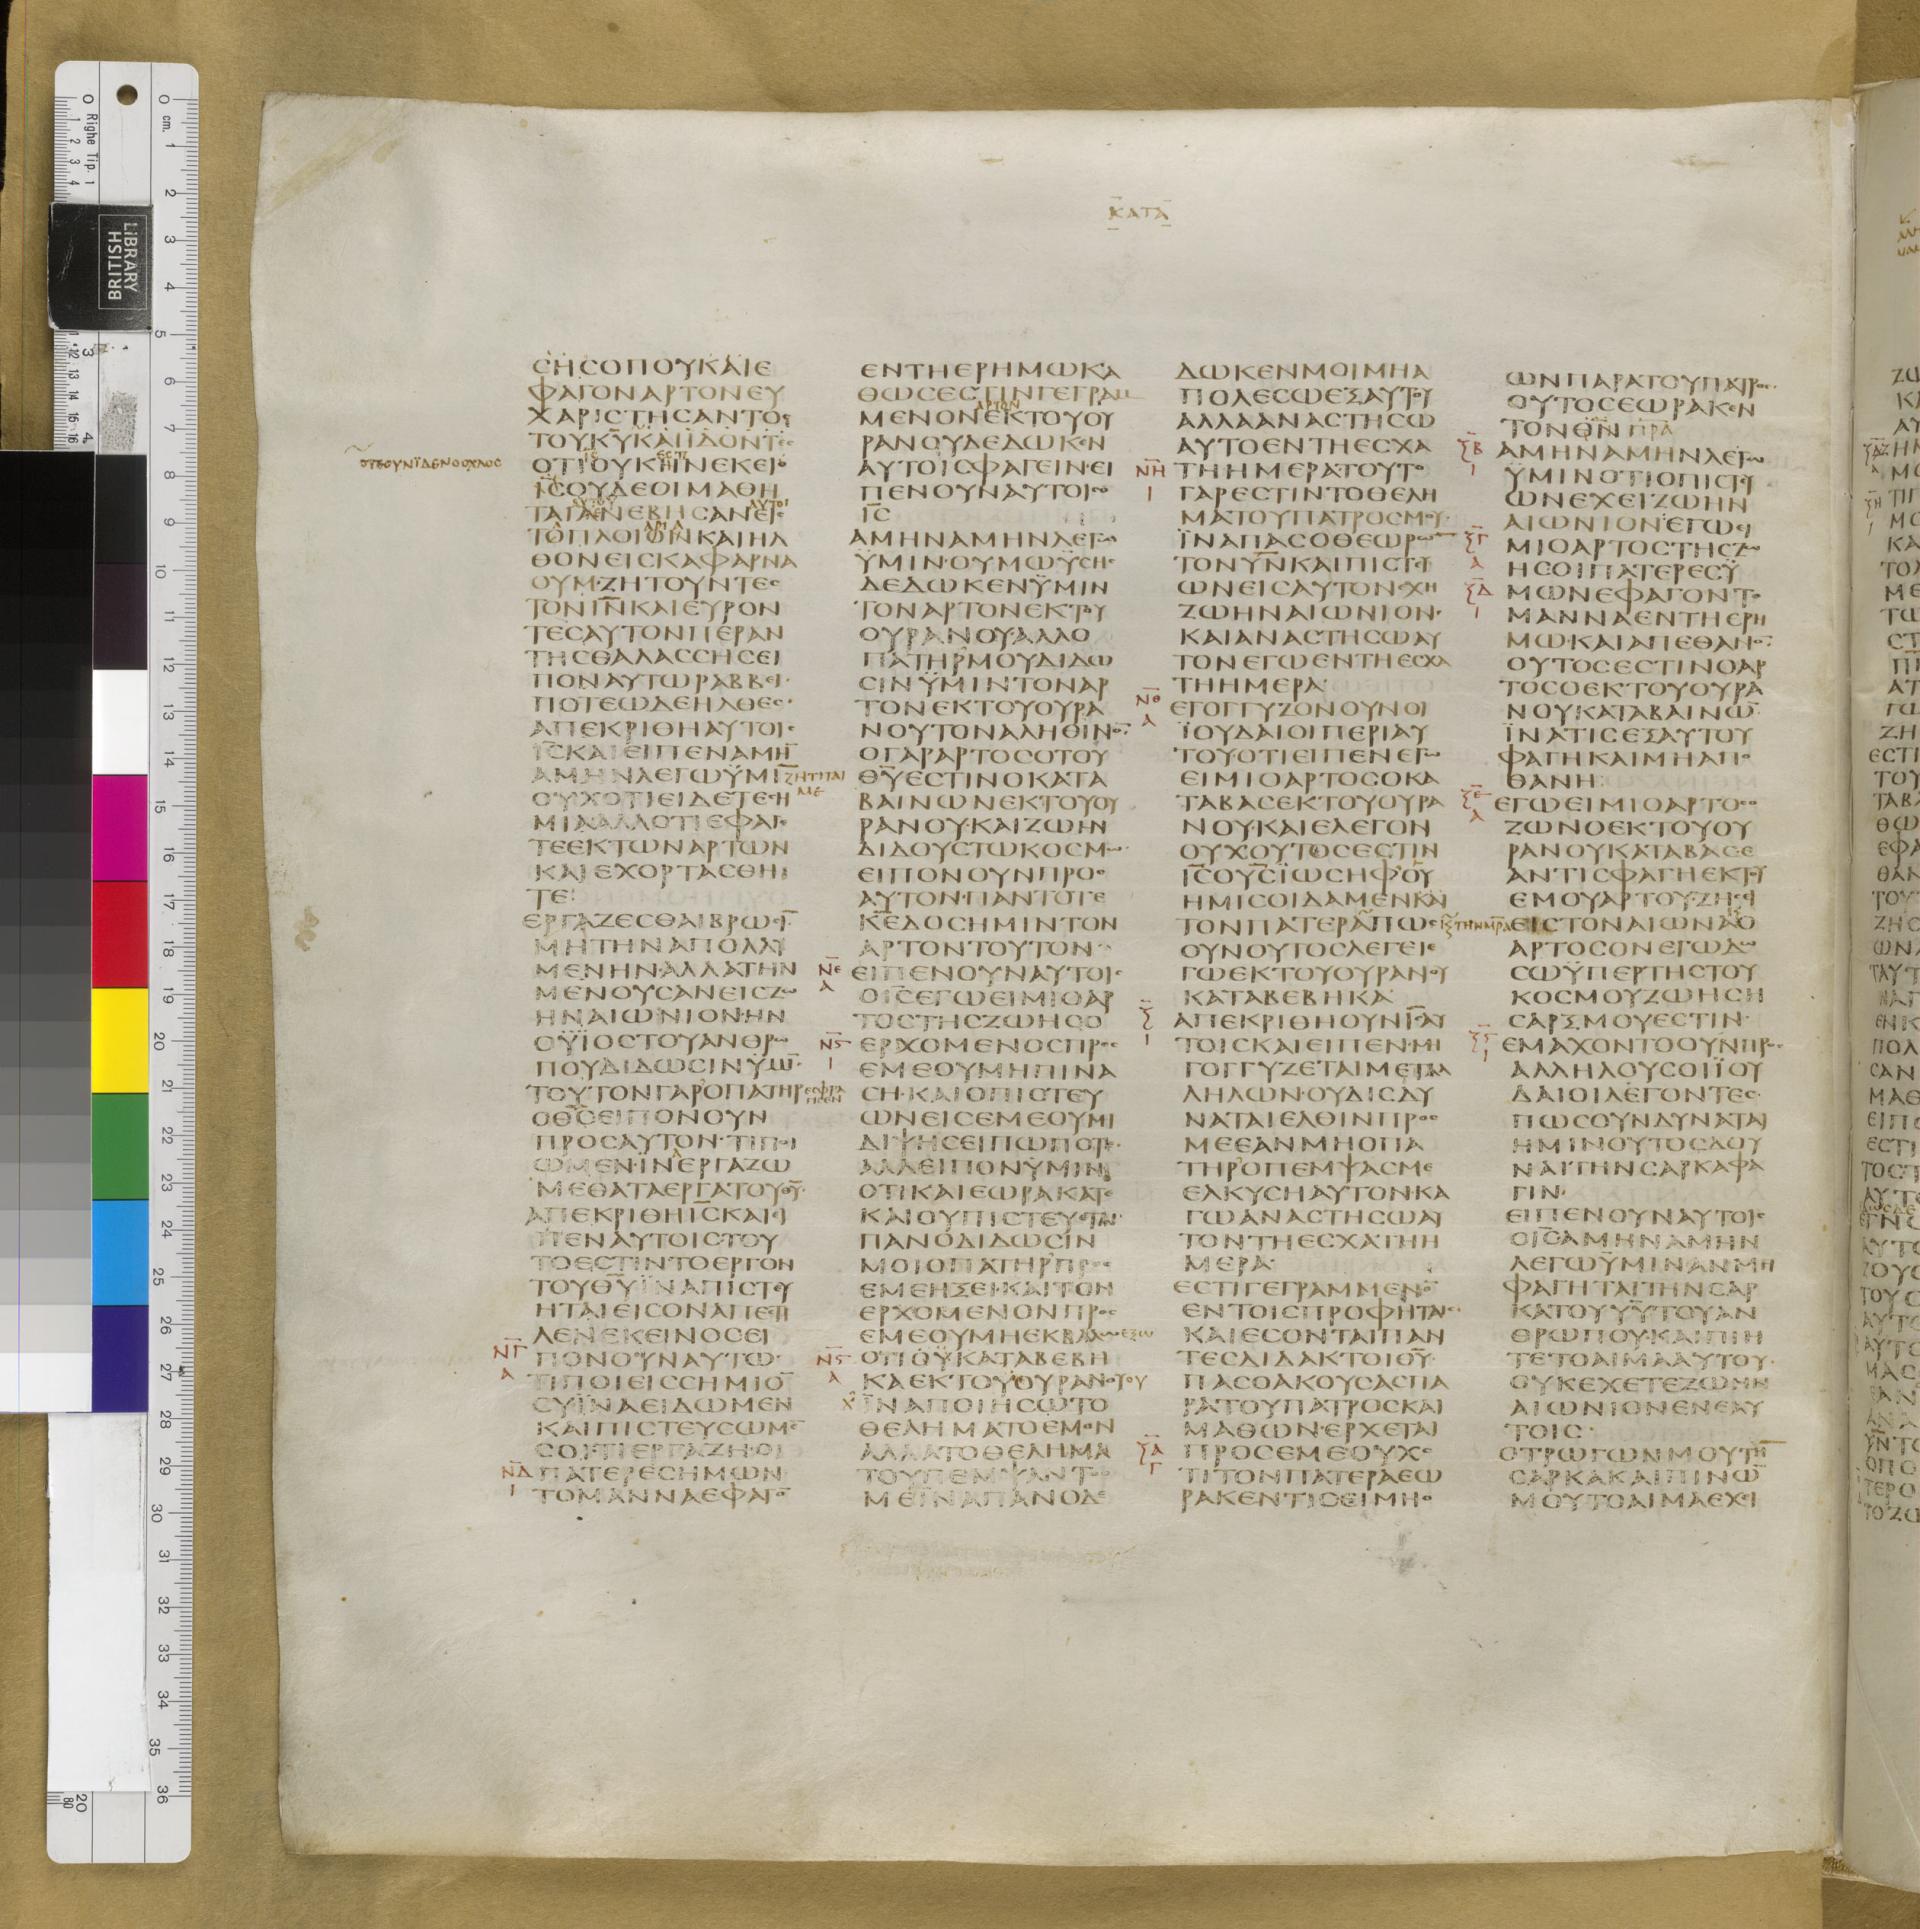 ΚΑΤΑ
ϹΗϹΟΠΟΥΚΑΙΕ
ΦΑΓΟΝΑΡΤΟΝΕΥ
ΧΑΡΙϹΤΗϹΑΝΤΟϹ
ΤΟΥΚ̅Υ̅ΚΑΙΪΔΟΝΤΕϹ
ΟΤΕΟΥΝΪΔΕΝΟΟΧΛΟϹ
ΘΟΝΕΙϹΚΑΦΑΡΝΑ
ΟΥΜ·ΖΗΤΟΥΝΤΕϹ
ΤΟΝΙ̅Ν̅ΚΑΙΕΥΡΟΝ
ΤΕϹΑΥΤΟΝΠΕΡΑΝ
ΤΗϹΘΑΛΑϹϹΗϹΕΙ
ΠΟΝΑΥΤΩΡΑΒΒΕΙ·
ΠΟΤΕΩΔΕΗΛΘΕϹ·
ΑΠΕΚΡΙΘΗΑΥΤΟΙϹ
Ι̅Ϲ̅ΚΑΙΕΙΠΕΝΑΜΗ̅
ΑΜΗΝΛΕΓΩΫΜΙ̅
ΖΗΤΙΤΑΙ
ΜΕ
ΟΥΧΟΤΙΕΙΔΕΤΕϹΗ
ΜΙΑΑΛΛΟΤΙΕΦΑΓΕ
ΤΕΕΚΤΩΝΑΡΤΩΝ
ΚΑΙΕΧΟΡΤΑϹΘΗ
ΤΕ
ΕΡΓΑΖΕϹΘΑΙΒΡΩϹΙ̅
ΜΗΤΗΝΑΠΟΛΛΥ
ΜΕΝΗΝ·ΑΛΛΑΤΗΝ
ΜΕΝΟΥϹΑΝΕΙϹΖΩ
ΗΝΑΙΩΝΙΟΝ·ΗΝ
ΟΫΪΟϹΤΟΥΑΝΘΡΩ
ΠΟΥΔΙΔΩϹΙΝΫΜΙ̅
ΤΟΥΤΟΝΓΑΡΟΠΑΤΗΡ
ΟΘ̅Ϲ̅ΕΙΠΟΝΟΥΝ
ΠΡΟϹΑΥΤΟΝ·ΤΙΠΟΙ
ΩΜΕΝ·ΙΝΑΕΡΓΑΖΩ
ΜΕΘΑΤΑΕΡΓΑΤΟΥΘ̅Υ̅·
ΑΠΕΚΡΙΘΗΙ̅Ϲ̅ΚΑΙΕΙ
ΠΕΝΑΥΤΟΙϹΤΟΥ
ΤΟΕϹΤΙΝΤΟΕΡΓΟΝ
ΤΟΥΘ̅Υ̅ΪΝΑΠΙϹΤΕΥ
ΗΤΑΙΕΙϹΟΝΑΠΕϹΤΙ
ΛΕΝΕΚΕΙΝΟϹΕΙ
Ν̅Γ̅
Α
ΠΟΝΟΥΝΑΥΤΩ·
ΤΙΠΟΙΕΙϹϹΗΜΙΟ̅
ϹΥΪΝΑΕΙΔΩΜΕΝ
ΚΑΙΠΙϹΤΕΥϹΩΜΕ̅
ϹΟΙ·ΤΙΕΡΓΑΖΗ·ΟΙ
Ν̅Δ̅
Ι
ΠΑΤΕΡΕϹΗΜΩΝ
ΤΟΜΑΝΝΑΕΦΑΓΟ̅
ΕΝΤΗΕΡΗΜΩΚΑ
ΘΩϹΕϹΤΙΝΓΕΓΡΑΜ
ΑΡΤΟΝ
ΜΕΝΟΝΕΚΤΟΥΟΥ
ΡΑΝΟΥΔΕΔΩΚΕΝ
ΑΥΤΟΙϹΦΑΓΕΙΝ·ΕΙ
ΠΕΝΟΥΝΑΥΤΟΙϹΟ
Ι̅Ϲ̅
ΑΜΗΝΑΜΗΝΛΕΓΩ
ΫΜΙΝ·ΟΥΜΩΫϹΗϹ
ΔΕΔΩΚΕΝΫΜΙΝ
ΤΟΝΑΡΤΟΝΕΚΤΟΥ
ΟΥΡΑΝΟΥ·ΑΛΛΟ
ΠΑΤΗΡΜΟΥΔΙΔΩ
ϹΙΝΫΜΙΝΤΟΝΑΡ
ΤΟΝΕΚΤΟΥΟΥΡΑ
ΝΟΥΤΟΝΑΛΗΘΙΝΟ̅
ΟΓΑΡΑΡΤΟϹΟΤΟΥ
Θ̅Υ̅ΕϹΤΙΝΟΚΑΤΑ
ΒΑΙΝΩΝΕΚΤΟΥΟΥ
ΡΑΝΟΥ·ΚΑΙΖΩΗΝ
ΔΙΔΟΥϹΤΩΚΟϹΜΩ·
ΕΙΠΟΝΟΥΝΠΡΟϹ
ΑΥΤΟΝ·ΠΑΝΤΟΤΕ
Κ̅Ε̅ΔΟϹΗΜΙΝΤΟΝ
ΑΡΤΟΝΤΟΥΤΟΝ·
Ν̅Ε̅
Α
ΕΙΠΕΝΟΥΝΑΥΤΟΙϹ
ΟΙ̅Ϲ̅ΕΓΩΕΙΜΙΟΑΡ
ΤΟϹΤΗϹΖΩΗϹΟ
Ν̅Ϛ̅
Ι
ΕΡΧΟΜΕΝΟϹΠΡΟϹ
ΕΜΕΟΥΜΗΠΙΝΑ
ϹΗ·ΚΑΙΟΠΙϹΤΕΥ
ΩΝΕΙϹΕΜΕΟΥΜΙ
ΔΙΨΗϹΕΙΠΩΠΟΤΕ·
ΑΛΛΕΙΠΟΝΫΜΙΝ
ΟΤΙΚΑΙΕΩΡΑΚΑΤΕ
ΚΑΙΟΥΠΙϹΤΕΥΕΤΑΙ·
ΠΑΝΟΔΙΔΩϹΙΝ
ΜΟΙΟΠΑΤΗΡΠΡΟϹ
ΕΜΕΗΞΕΙ·ΚΑΙΤΟΝ
ΕΡΧΟΜΕΝΟΝΠΡΟϹ
ΕΜΕΟΥΜΗΕΚΒΑΛΩΕΞΩ
ΟΤΙΟΥΚΑΤΑΒΕΒΗ
ΚΑΕΚΤΟΥΟΥΡΑΝΟΥΟΥ
ΪΝΑΠΟΙΗϹΩΤΟ
ΘΕΛΗΜΑΤΟΕΜΟΝ
ΑΛΛΑΤΟΘΕΛΗΜΑ
ΤΟΥΠΕΜΨΑΝΤΟϹ
ΜΕΪΝΑΠΑΝΟΔΕ
ΔΩΚΕΝΜΟΙΜΗΑ
ΠΟΛΕϹΩΕΞΑΥΤΟΥ
ΑΛΛΑΑΝΑϹΤΗϹΩ
ΑΥΤΟΕΝΤΗΕϹΧΑ
Ν̅Η̅
Ι
ΤΗΗΜΕΡΑΤΟΥΤΟ
ΓΑΡΕϹΤΙΝΤΟΘΕΛΗ
ΜΑΤΟΥΠΑΤΡΟϹΜΟΥ·
ΪΝΑΠΑϹΟΘΕΩΡΩ̅
ΤΟΝΥ̅Ν̅ΚΑΙΠΙϹΤΕΥ
ΩΝΕΙϹΑΥΤΟΝΕΧΗ
ΖΩΗΝΑΙΩΝΙΟΝ·
ΚΑΙΑΝΑϹΤΗϹΩΑΥ
ΤΟΝΕΓΩΕΝΤΗΕϹΧΑ
ΤΗΗΜΕΡΑ
ΕΓΟΓΓΥΖΟΝΟΥΝΟΙ
ΪΟΥΔΑΙΟΙΠΕΡΙΑΥ
ΤΟΥΟΤΙΕΙΠΕΝΕΓΩ
ΕΙΜΙΟΑΡΤΟϹΟΚΑ
ΤΑΒΑϹΕΚΤΟΥΟΥΡΑ
ΝΟΥ·ΚΑΙΕΛΕΓΟΝ
ΟΥΧΟΥΤΟϹΕϹΤΙΝ
Ι̅Ϲ̅ΟΥ̅Ϲ̅ΪΩϹΗΦ·ΟΥ
ΗΜΙϹΟΙΔΑΜΕΝΚΑΙ
ΤΟΝΠΑΤΕΡΑΠΩϹ
ΟΥΝΟΥΤΟϹΛΕΓΕΙΕ
ΓΩΕΚΤΟΥΟΥΡΑΝΟΥ
ΚΑΤΑΒΕΒΗΚΑ
Ξ̅
Ι
ΑΠΕΚΡΙΘΗΟΥΝΙ̅Ϲ̅ΑΥ
ΤΟΙϹΚΑΙΕΙΠΕΝ·ΜΗ
ΓΟΓΓΥΖΕΤΑΙΜΕΤΑΛ
ΛΗΛΩΝ·ΟΥΔΙϹΔΥ
ΝΑΤΑΙΕΛΘΙΝΠΡΟϹ
ΜΕΕΑΝΜΗΟΠΑ
ΤΗΡΟΠΕΜΨΑϹΜΕ
ΕΛΚΥϹΗΑΥΤΟΝ·ΚΑ
ΓΩΑΝΑϹΤΗϹΩΑΥ
ΤΟΝΤΗΕϹΧΑΤΗΗ
ΜΕΡΑ
ΕϹΤΙΓΕΓΡΑΜΜΕΝΟ̅
ΕΝΤΟΙϹΠΡΟΦΗΤΑΙϹ·
ΚΑΙΕϹΟΝΤΑΙΠΑΝ
ΤΕϹΔΙΔΑΚΤΟΙΘ̅Υ̅·
ΠΑϹΟΑΚΟΥϹΑϹΠΑ
ΡΑΤΟΥΠΑΤΡΟϹΚΑΙ
ΜΑΘΩΝ·ΕΡΧΕΤΑΙ
Ξ̅Α̅
Γ
ΠΡΟϹΕΜΕΟΥΧΟ
ΤΙΤΟΝΠΑΤΕΡΑΕΩ
ΡΑΚΕΝΤΙϹΕΙΜΗΟ
ΩΝΠΑΡΑΤΟΥΠΑΤΡΟϹ
ΟΥΤΟϹΕΩΡΑΚΕΝ
ΤΟΝΘ̅Ν̅
Ξ̅Β̅
Ι
ΑΜΗΝΑΜΗΝΛΕΓΩ
ΫΜΙΝΟΤΙΟΠΙϹΤΕΥ
ΩΝΕΧΕΙΖΩΗΝ
ΑΙΩΝΙΟΝ·ΕΓΩΕΙ
Ξ̅Γ̅
Α
ΜΙΟΑΡΤΟϹΤΗϹΖΩ
ΗϹΟΙΠΑΤΕΡΕϹΫ
Ξ̅Δ̅
Ι
ΜΩΝΕΦΑΓΟΝΤΟ
ΜΑΝΝΑΕΝΤΗΕΡΗ
ΜΩ·ΚΑΙΑΠΕΘΑΝΟ̅
ΟΥΤΟϹΕϹΤΙΝΟΑΡ
ΤΟϹΟΕΚΤΟΥΟΥΡΑ
ΝΟΥΚΑΤΑΒΑΙΝΩ̅
ΪΝΑΤΙϹΕΞΑΥΤΟΥ
ΦΑΓΗΚΑΙΜΗΑΠΟ
ΘΑΝΗ
Ξ̅Ε̅
Α
ΕΓΩΕΙΜΙΟΑΡΤΟϹΟ
ΖΩΝΟΕΚΤΟΥΟΥ
ΡΑΝΟΥΚΑΤΑΒΑϹΕ
ΑΝΤΙϹΦΑΓΗΕΚΤΟΥ
ΕΜΟΥΑΡΤΟΥ·ΖΗϹΕΙ
ΕΙϹΤΟΝΑΙΩΝΑΟ
ΑΡΤΟϹΟΝΕΓΩΔΩ
ϹΩΫΠΕΡΤΗϹΤΟΥ
ΚΟϹΜΟΥΖΩΗϹΗ
ϹΑΡΞΜΟΥΕϹΤΙΝ·
Ξ̅Ϛ̅
Ι
ΕΜΑΧΟΝΤΟΟΥΝΠΡΟϹ
ΑΛΛΗΛΟΥϹΟΙΪΟΥ
ΔΑΙΟΙΛΕΓΟΝΤΕϹ·
ΠΩϹΟΥΝΔΥΝΑΤΑΙ
ΗΜΙΝΟΥΤΟϹΔΟΥ
ΝΑΙΤΗΝϹΑΡΚΑΦΑ
ΓΙΝ·
ΕΙΠΕΝΟΥΝΑΥΤΟΙϹ
ΟΙ̅Ϲ̅ΑΜΗΝΑΜΗΝ
ΛΕΓΩΫΜΙΝΑΝΜΗ
ΦΑΓΗΤΑΙΤΗΝϹΑΡ
ΚΑΤΟΥΥ̅Υ̅ΤΟΥΑΝ
ΘΡΩΠΟΥ·ΚΑΙΠΙΗ
ΤΕΤΟΑΙΜΑΑΥΤΟΥ·
ΟΥΚΕΧΕΤΕΖΩΗΝ
ΑΙΩΝΙΟΝΕΝΕΑΥ
ΤΟΙϹ·
ΟΤΡΩΓΩΝΜΟΥΤΗ̅
ϹΑΡΚΑΚΑΙΠΙΝΩ̅
ΜΟΥΤΟΑΙΜΑΕΧΕΙ
BRITISH
LIBRARY